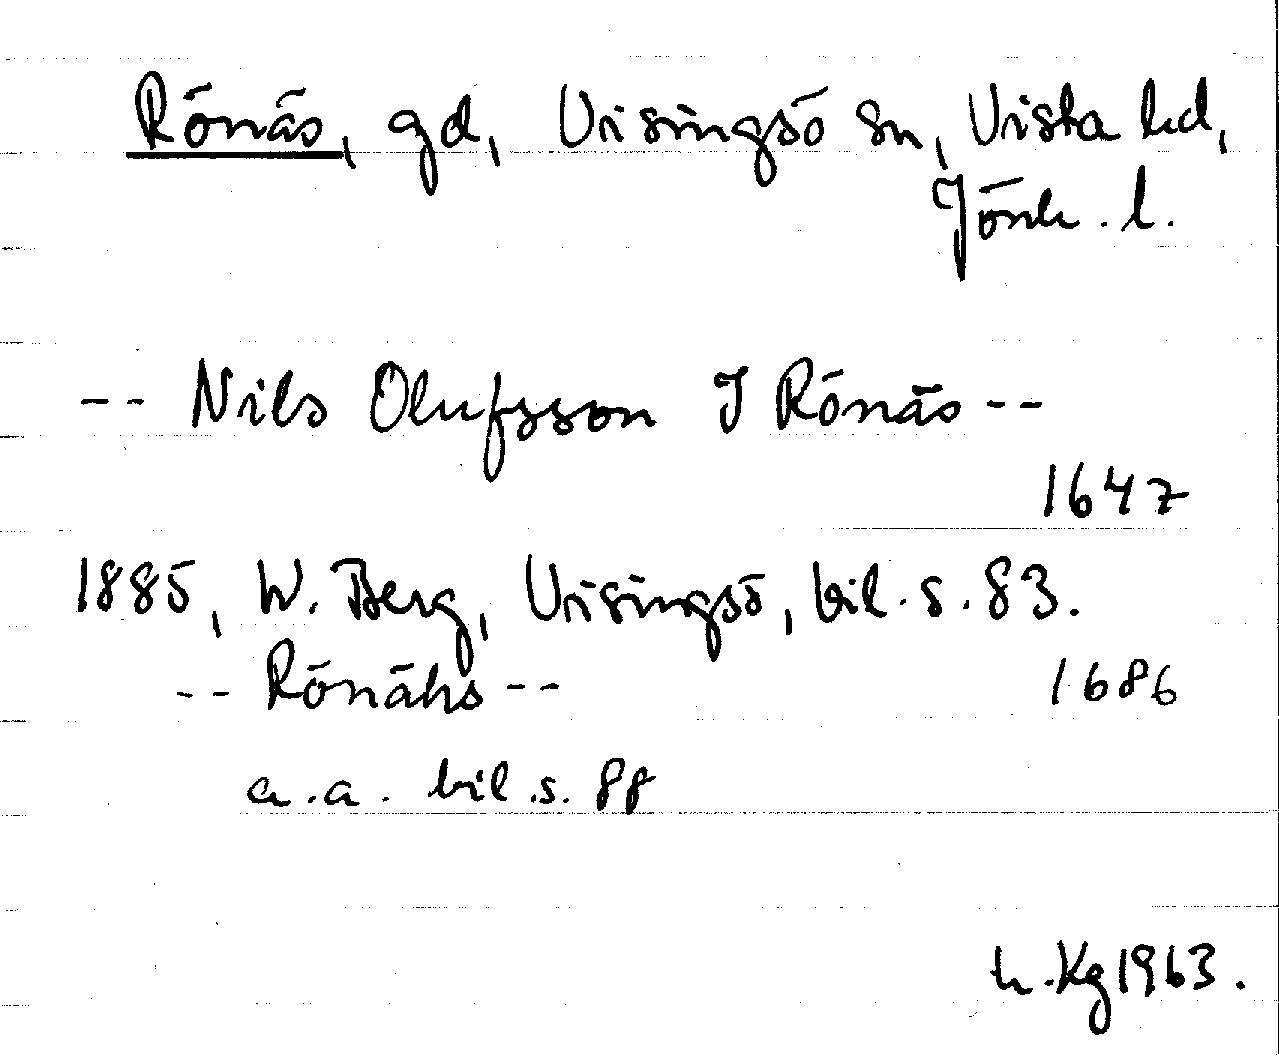 Rönäs, gd, Visingsö sn, Vista hd,
Jönk. l.
-- Nils Olufsson J Rönäs --
1647
1885, W. Berg, Visingsö, bil. s. 83.
-- Rönähs -- 1686
a.a. bil. s. 88
h. Kg 1963.